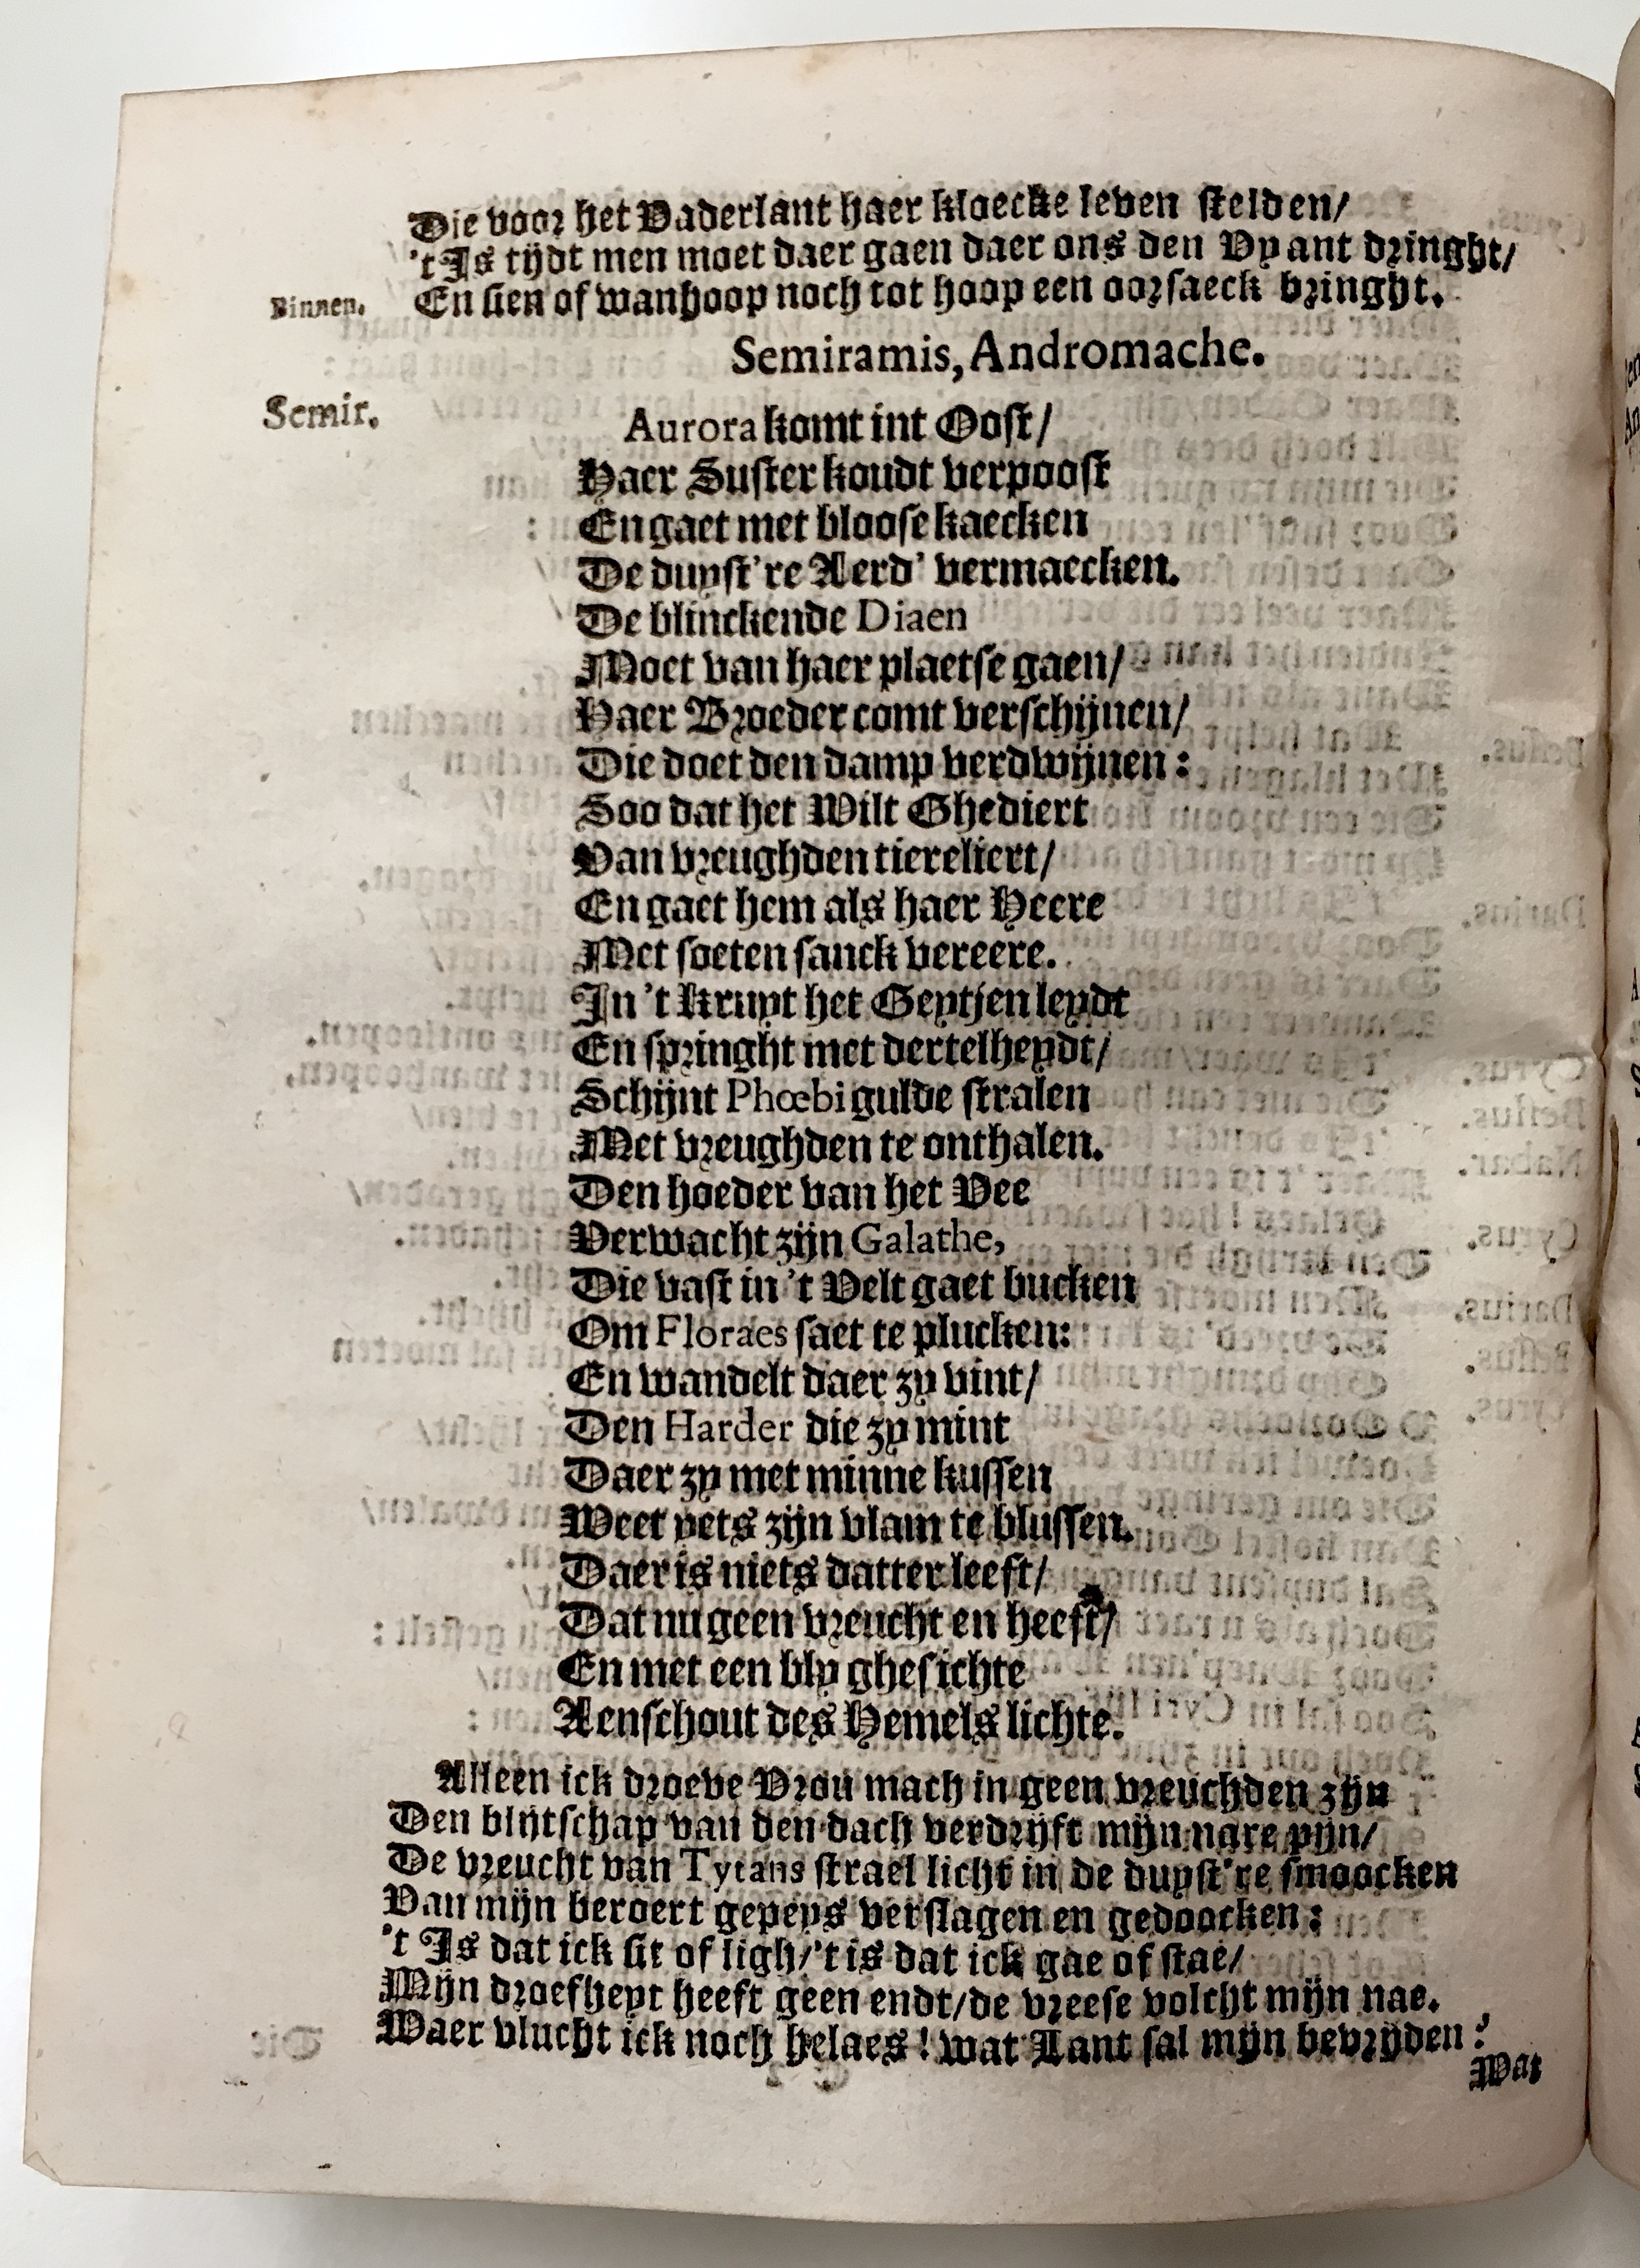 Die voor het Vaderlant haer kloecke leven stelden/
't Is tijdt men moet daer gaen daer ons den Vyant dringht/
Binnen. En sien of wanhoop noch tot hoop een oorsaeck bringht.
Semiramis, Andromache.
Semir. Aurora komt int Oost/
Haer Suster koudt verpoost
En gaet met bloose kaecken
De duyst're Aerd' vermaecken.
De blinckende Diaen
Moet van haer plaetse gaen/
Haer Broeder comt verschijnen/
Die doet den damp verdwijnen:
Soo dat het Wilt Ghediert
Van vreughden tiereliert/
En gaet hem als haer Heere
Met soeten sanck vereere.
In 't kruyt het Geytjen leydt
En springht met dertelheydt/
Schijnt Phœbi gulde stralen
Met vreughden te onthalen.
Den hoeder van het Vee
Verwacht zijn Galathe,
Die vast in 't Velt gaet bucken
Om Floraes saet te plucken:
En wandelt daer zy vint/
Den Harder die zy mint
Daer zy met minne kussen
Weet yets zijn vlam te blussen.
Daer is niets datter leeft/
Dat nu geen vreucht en heeft/
En met een bly ghesichte
Aenschout des Hemels lichte.
Alleen ick droeve Vrou mach in geen vreuchden zijn
Den blijtschap van den dach verdrijft mijn nare pijn/
De vreucht van Tytans strael licht in de duyst're smoocken
Van mijn beroert gepeys verslagen en gedoocken:
't Is dat ick sit of ligh/'t is dat ick gae of stae/
Mijn droefheyt heeft geen endt/de vreese volcht mijn nae.
Waer vlucht ick noch helaes! wat Lant sal mijn bevrijden?
Wat